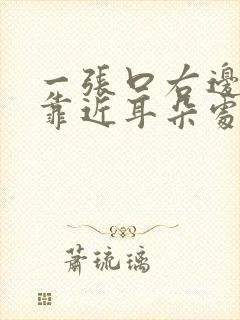 一張口右邊
靠近耳朵處
蕭琉璃